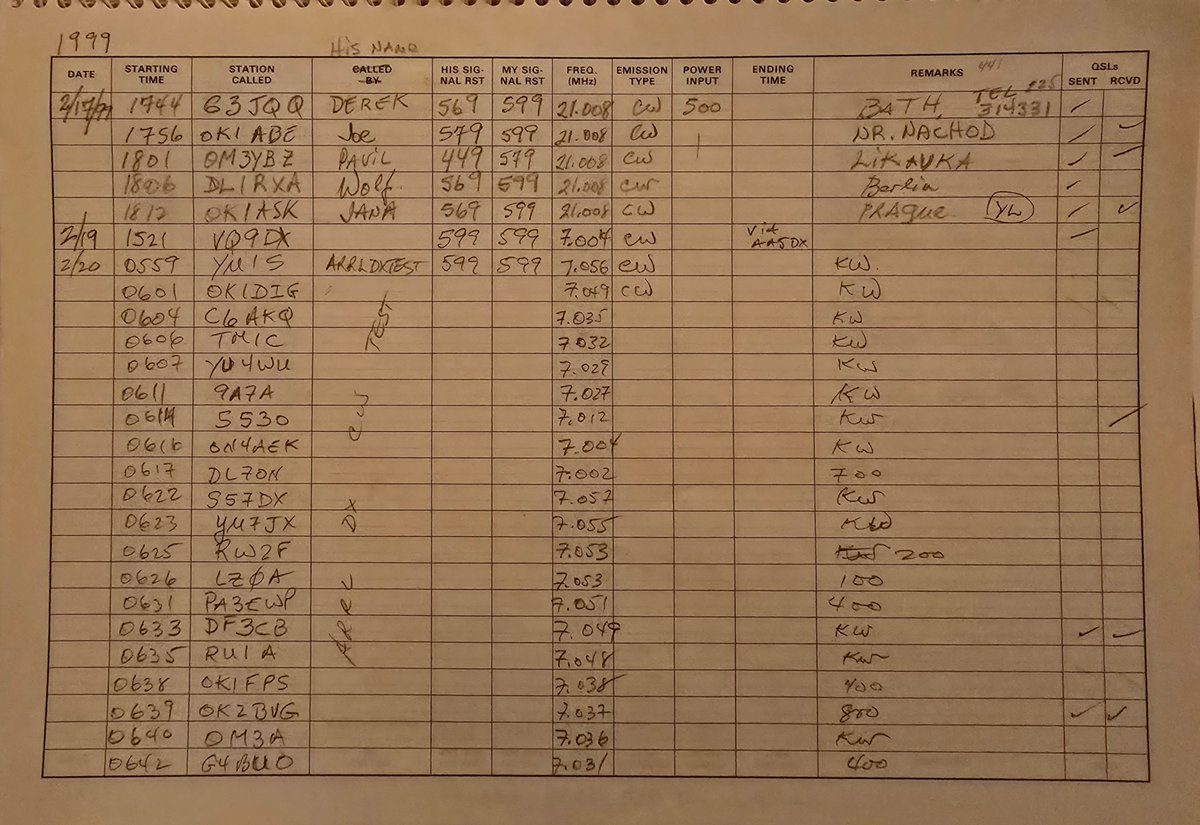 1999 HiS NAME
DATE STARTING TIME STATION CALLED CALLED BY HIS SIG-NAL RST MY SIG-NAL RST FREQ. (MHz) EMISSION TYPE POWER INPUT ENDING TIME REMARKS QSLs SENT RCVD
441 TEL 225
2/17/99 1744 G3JQQ DEREK 569 599 21.008 CW 500 BATH, 314331
1756 OK1ABE Joe 579 599 21.008 CW NR. NACHOD
1801 OM3YBZ PAViL 449 579 21.008 CW LiKAVKA
1806 DL1RXA Wolf. 569 599 21.008 CW Berlin
1812 OK1ASK JANA 569 599 21.008 CW PRAgue YL
2/19 1521 VQ9DX 599 599 7.004 CW ViA AA5DX
2/20 0559 YU1S ARRLDXTEST 599 599 7.056 CW KW.
0601 OK1DIG 7.049 CW KW
0604 C6AKQ 7.035 KW
0606 TM1C 7.032 KW
0607 YU4WU 7.029 KW
0611 9A7A 7.027 KW
0614 S530 7.012 KW
0616 ON4AEK 7.004 KW
0617 DL7ON 7.002 700
0622 S57DX 7.057 KW
0623 YU7JX 7.055 KW
0625 RW2F 7.053 KW 200
0626 LZØA 7.053 100
0631 PA3EWP 7.051 400
0633 DF3CB 7.049 KW
0635 RU1A 7.048 KW
0638 OK1FPS 7.038 400
0639 OK2BVG 7.037 800
0640 OM3A 7.036 KW
0642 G4BUO 7.031 400
ARRL DX CW TEST